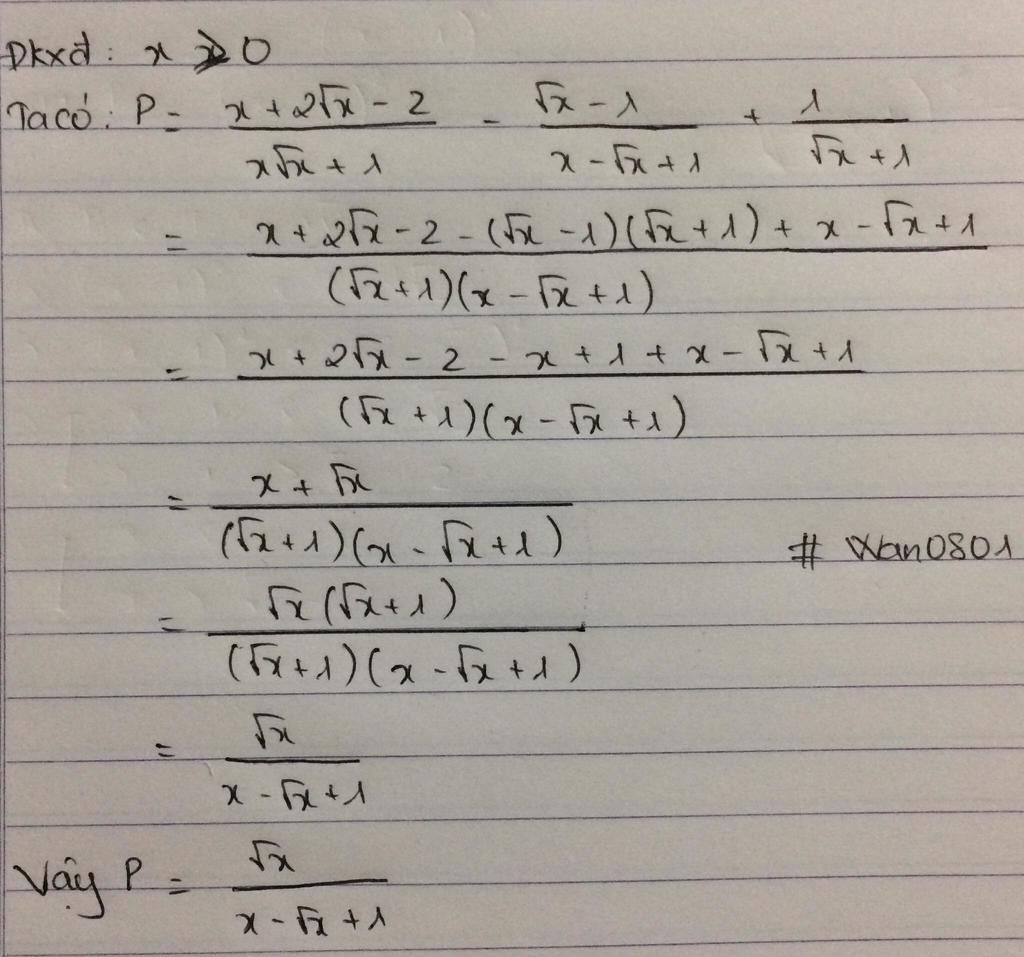 Đkxđ: x ≥ 0
Ta có: P = \frac{x + 2√x - 2}{x√x + 1} - \frac{√x - 1}{x - √x + 1} + \frac{1}{√x + 1}
= \frac{x + 2√x - 2 - (√x - 1)(√x + 1) + x - √x + 1}{(√x + 1)(x - √x + 1)}
= \frac{x + 2√x - 2 - x + 1 + x - √x + 1}{(√x + 1)(x - √x + 1)}
= \frac{x + √x}{(√x + 1)(x - √x + 1)}
# Wan0801
= \frac{√x(√x + 1)}{(√x + 1)(x - √x + 1)}
= \frac{√x}{x - √x + 1}
Vậy P = \frac{√x}{x - √x + 1}